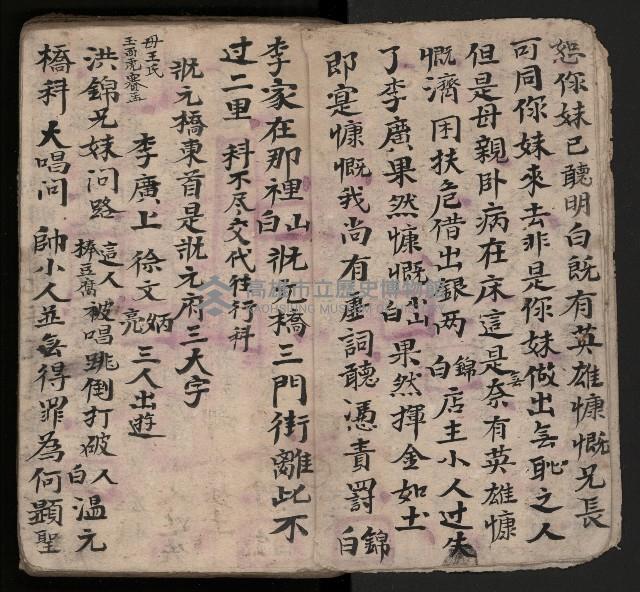 恕你妹已聽明白既有英雄慷慨兄長
可同你妹來去非是你妹做出無恥之人
但是母親卧病在床這是奈有英雄慷
慨濟困扶危借出銀两錦白店主小人过失
了李廣果然慷慨山白果然揮金如土
即寔慷慨我尚有虛詞聽憑責罰錦白
李家在那裡山白狀元橋三門街離此不
过二里科不尽交代往行科
狀元橋東首是狀元府三大字
李廣上徐文炳亮三人出遊
母王氏
玉面虎賽孟
洪錦兄妹问路這人捧豆腐被唱跳倒打破人白温元
橋科大唱问帥小人並無得罪為何顕聖
高雄市立歷史博物館
KAOHSIUNG MUSEUM OF HISTORY